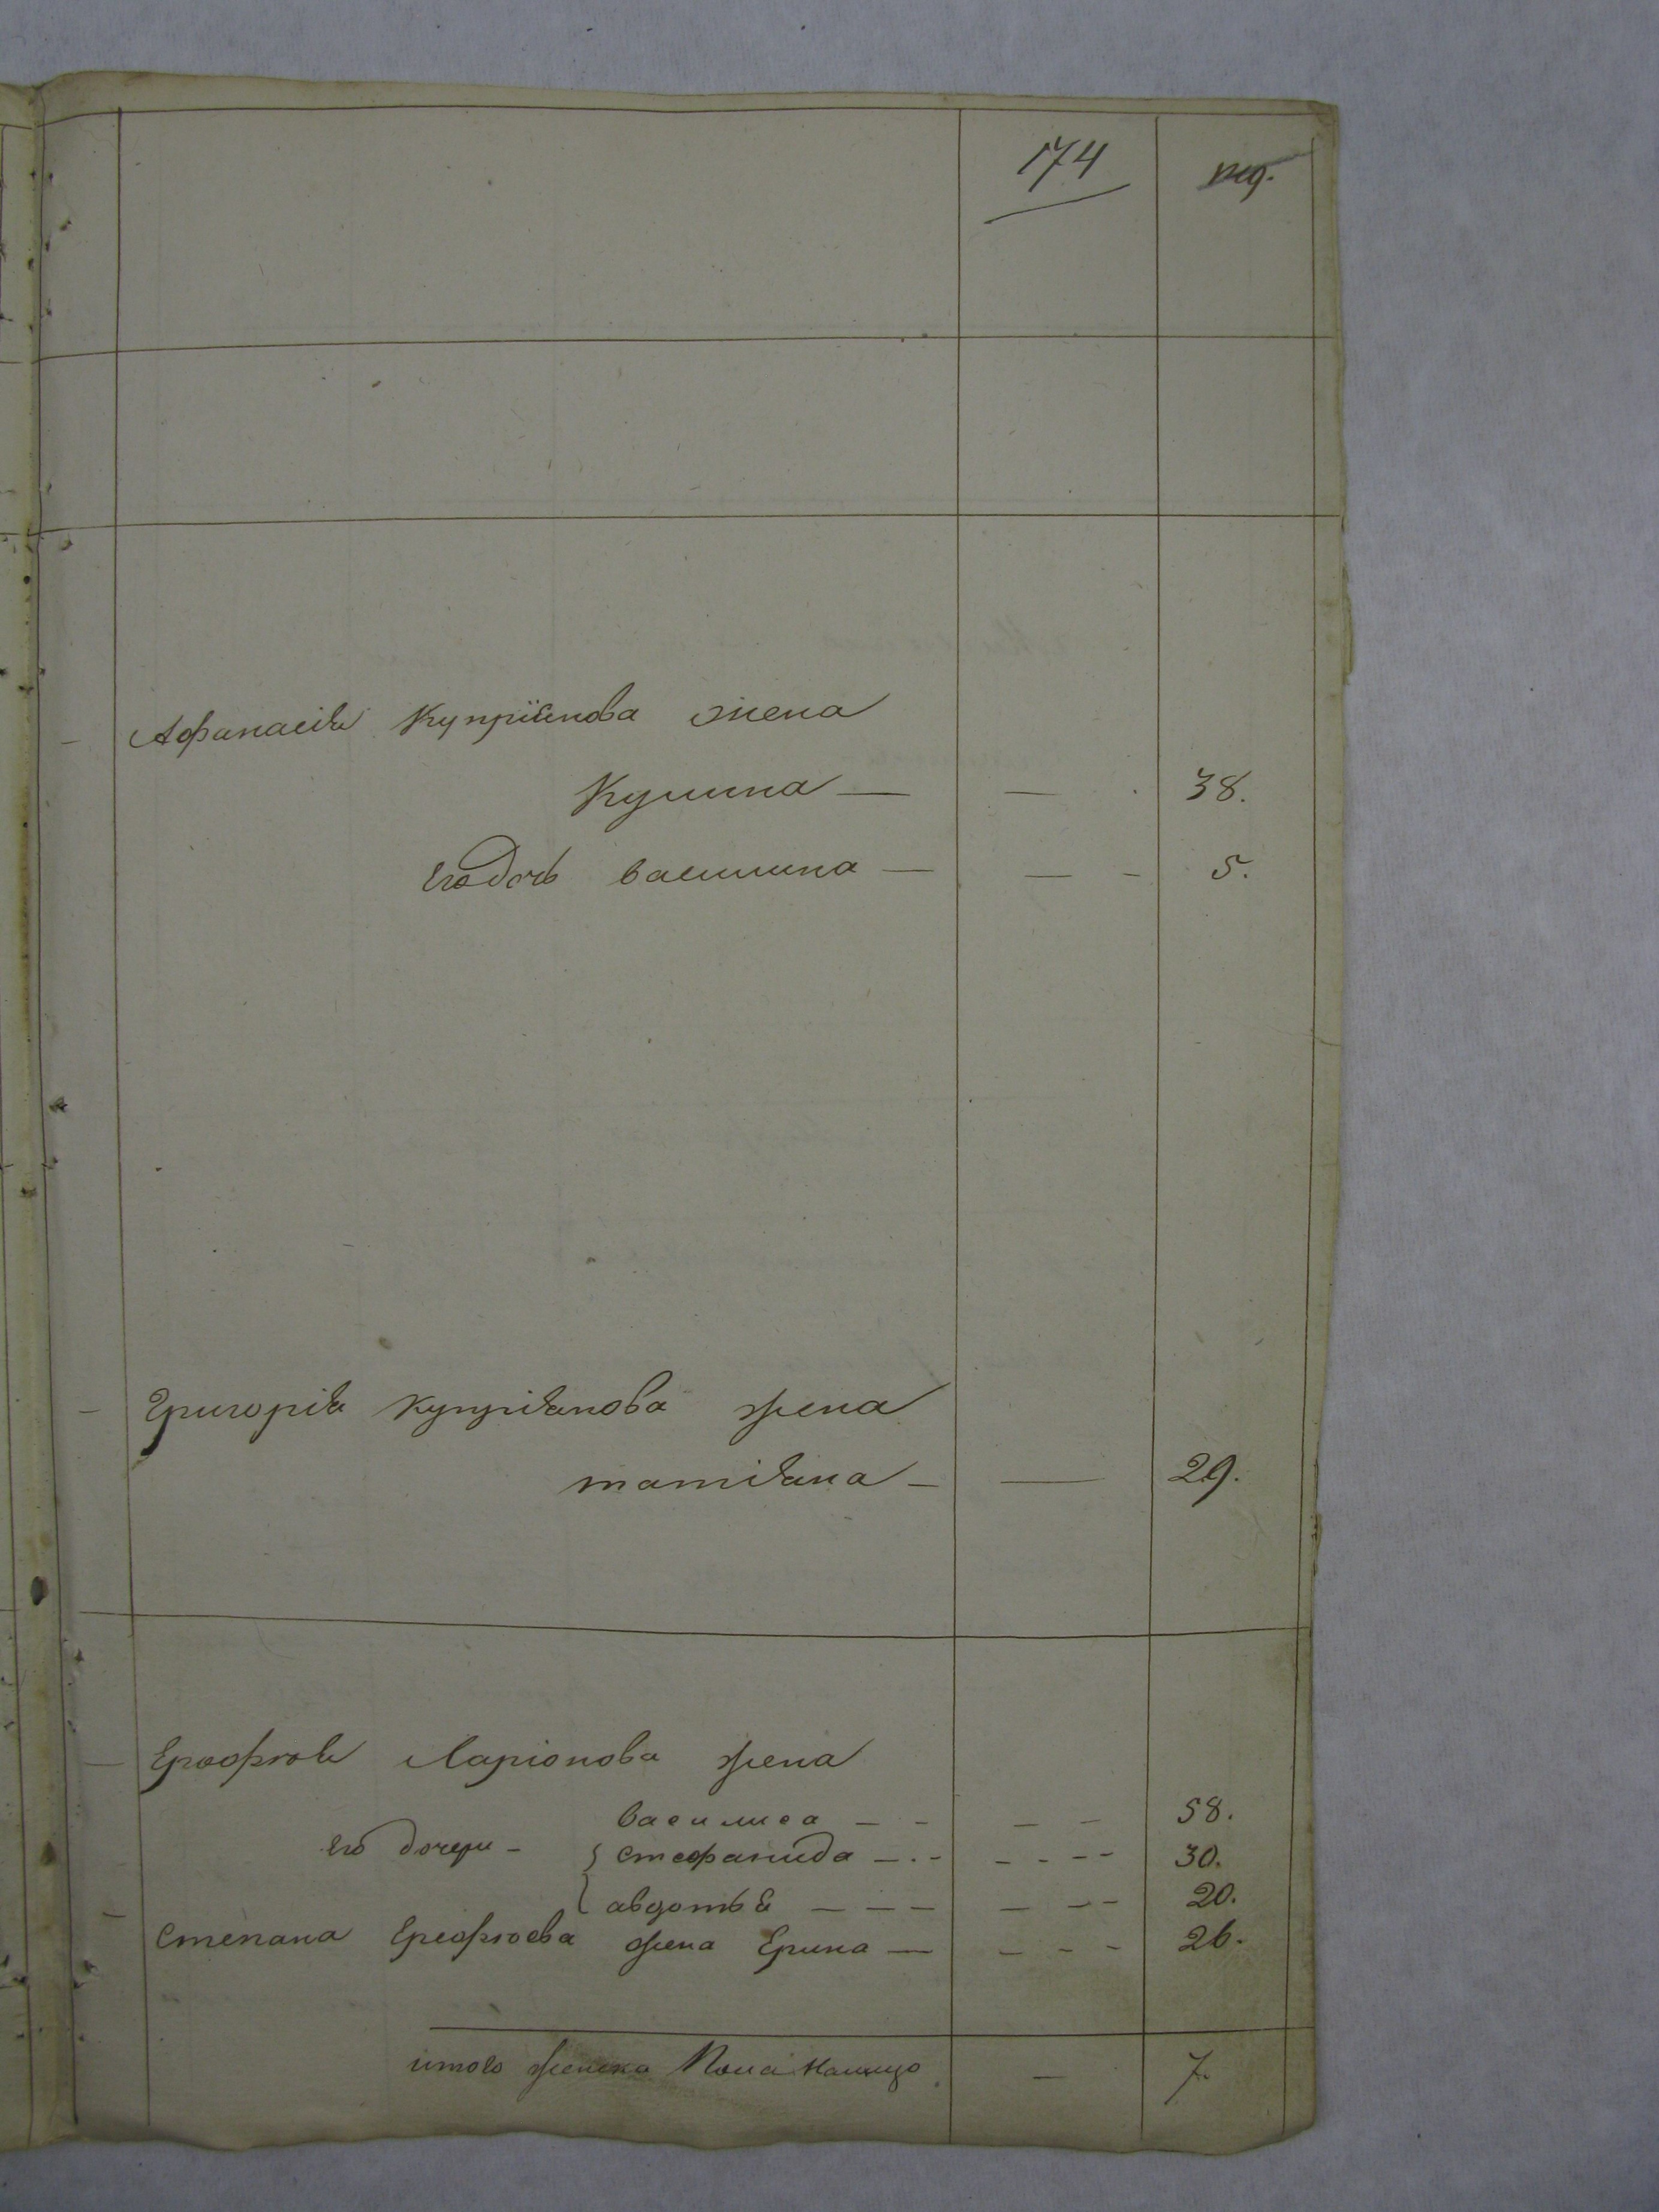 174
Афанасия Купріянова жена
Кулина — — 38.
его дочь василина — — - 5.
Григорія купріянова жена
татіяна — — 29.
Ерофѣя Ларіонова жена
василиса — - — — 58.
его дочери - стефанида — . - - - - - 30.
авдотья — — — — — - 20.
степана Ерефѣева жена Ерина — — - - 26.
итого женска пола на лицо — 7.